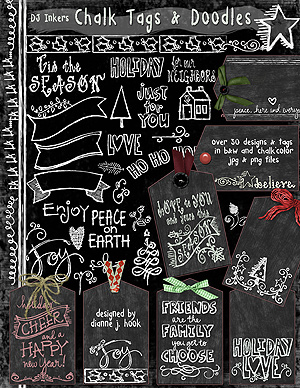 DJ Inkers Chalk Tags & Doodles
'tis the
SEASON
HOLIDAY
for our
NEIGHBORS
JUST
for
YOU
peace, here and every
LOVE
HO HO HO
over 30 designs & tags
in b&w and chalk color
jpg & png files
believe
Enjoy
PEACE
on
EARTH
LOVE to YOU
and yours this
Joy
holiday
CHEER
and a
HAPPY
new year!
designed by
dianne j. hook
Joy
FRIENDS
are the
FAMILY
you get to
CHOOSE
HOLIDAY
LOVE